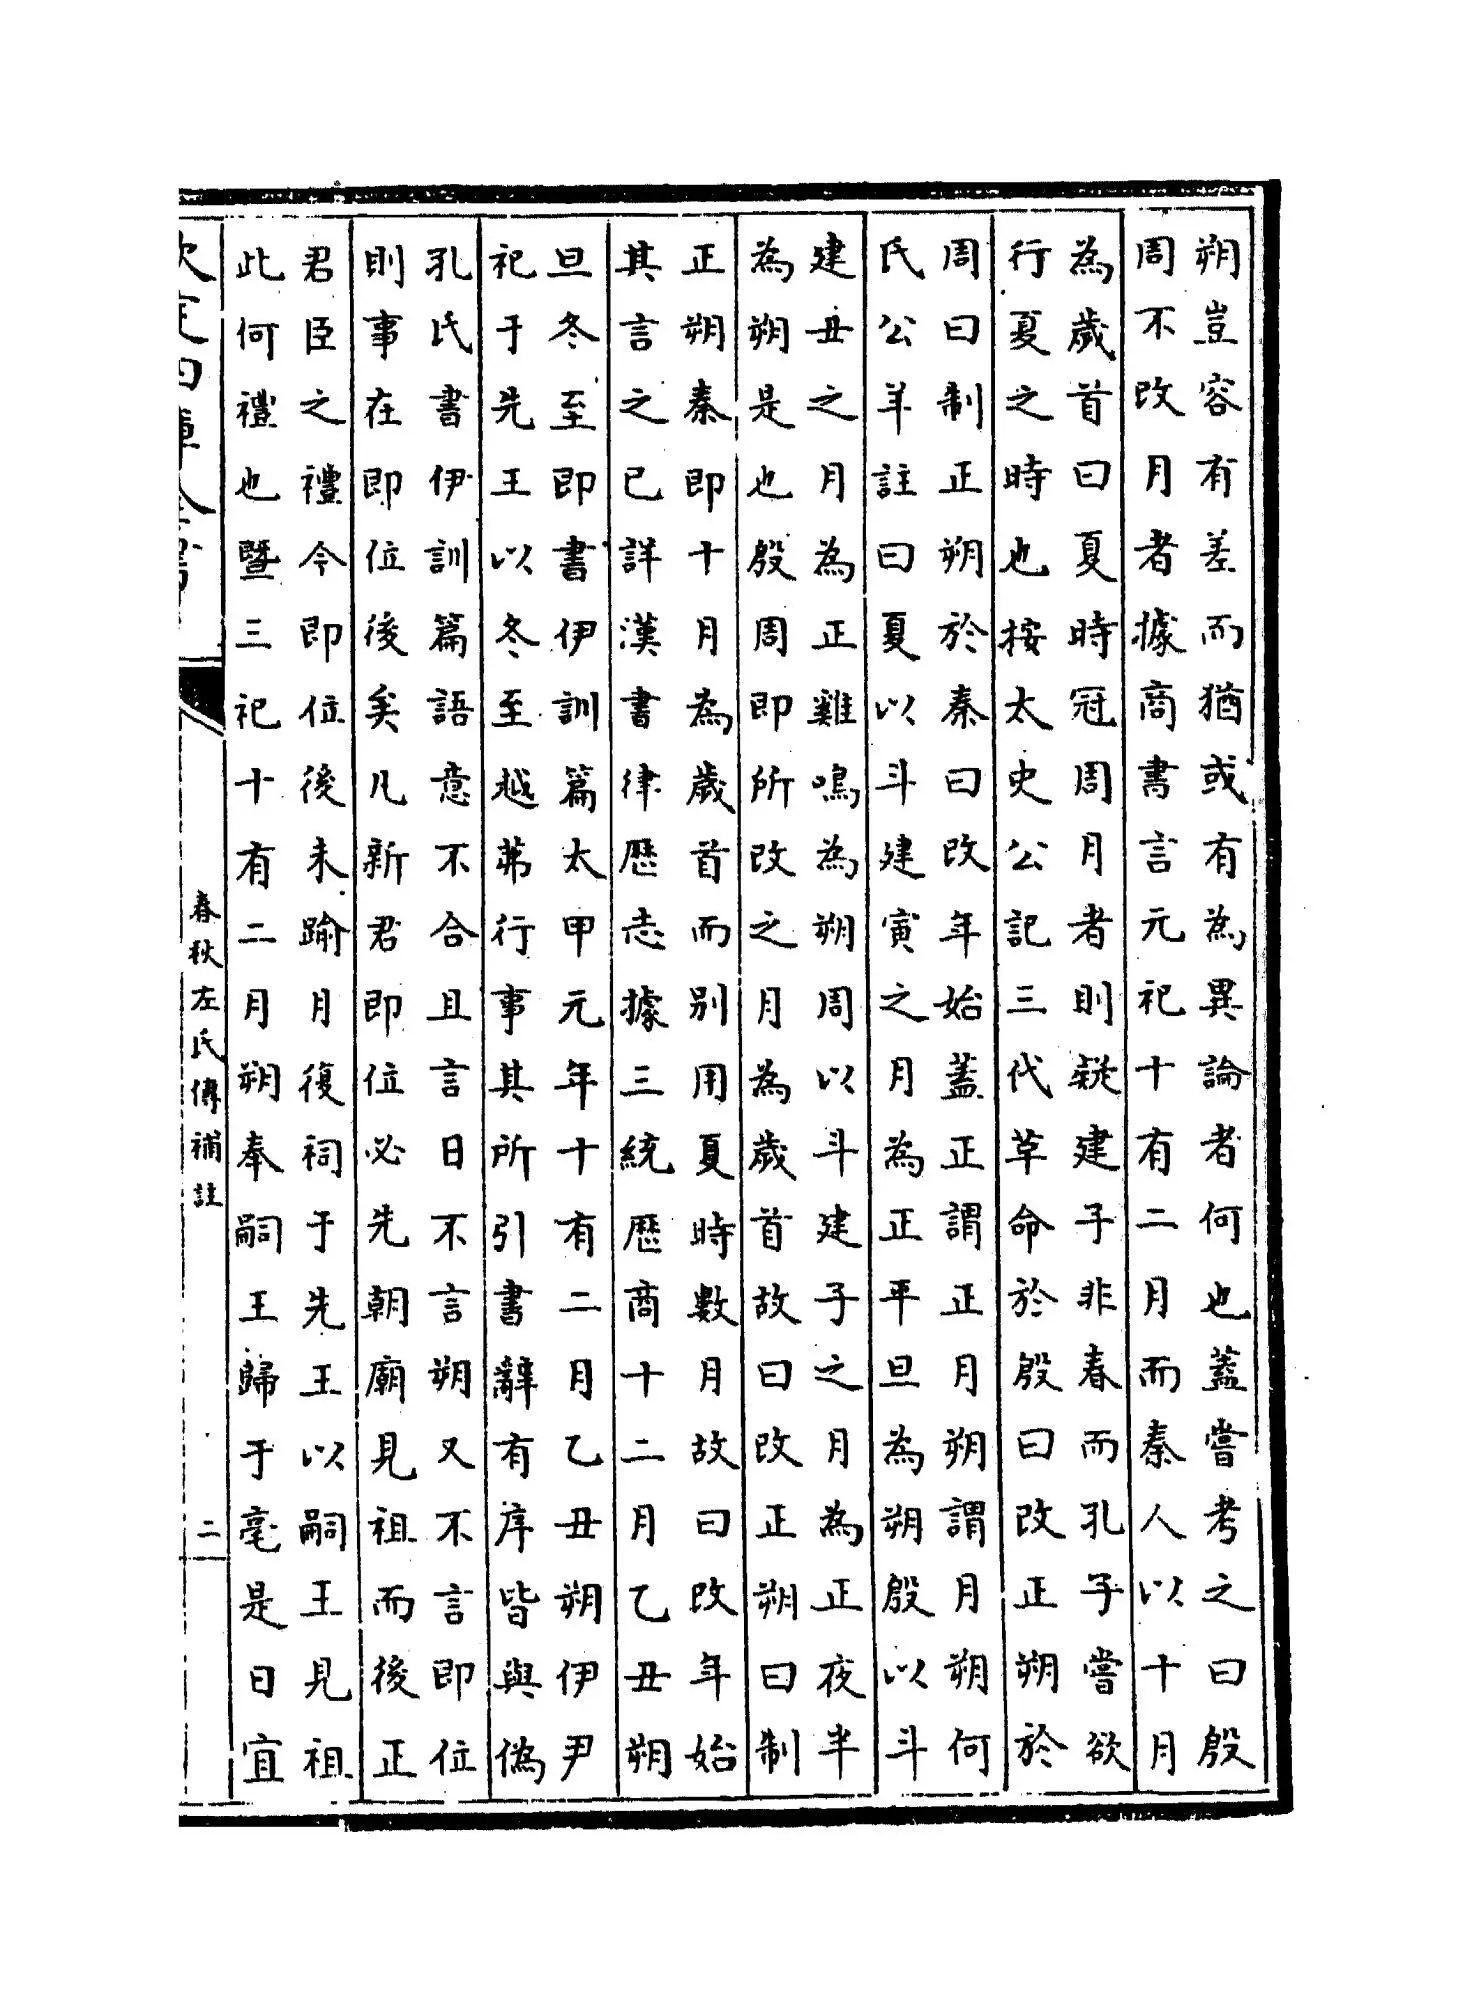 朔豈容有差而猶或有為異論者何也蓋嘗考之曰殷
周不改月者據商書言元祀十有二月而秦人以十月
為歲首曰夏時冠周月者則疑建子非春而孔子嘗欲
行夏之時也按太史公記三代革命於殷曰改正朔於
周曰制正朔於秦曰改年始蓋正謂正月朔謂月朔何
氏公羊註曰夏以斗建寅之月為正平旦為朔殷以斗
建丑之月為正雞鳴為朔周以斗建子之月為正夜半
為朔是也殷周即所改之月為歲首故曰改正朔曰制
正朔秦即十月為歲首而別用夏時數月故曰改年始
其言之已詳漢書律歷志據三統歷商十二月乙丑朔
旦冬至即書伊訓篇太甲元年十有二月乙丑朔伊尹
祀于先王以冬至越茀行事其所引書辭有序皆與偽
孔氏書伊訓篇語意不合且言日不言朔又不言即位
則事在即位後矣凡新君即位必先朝廟見祖而後正
君臣之禮今即位後未踰月復祠于先王以嗣王見祖
此何禮也暨三祀十有二月朔奉嗣王歸于亳是日宜
欽定四庫全書
春秋左氏傳補註
二